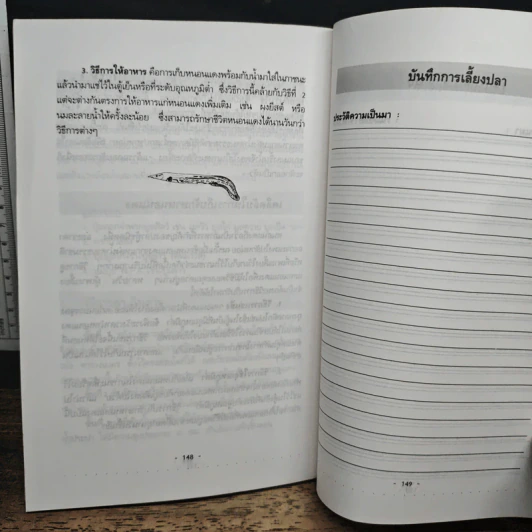 3. วิธีการให้อาหาร คือการเก็บหนอนแดงพร้อมกับน้ำมาใส่ในภาชนะ
แล้วนำมาแช่ไว้ในตู้เย็นหรือที่ระดับอุณหภูมิต่ำ ซึ่งวิธีการนี้คล้ายกับวิธีที่ 2
แต่จะต่างกันตรงการให้อาหารแก่หนอนแดงเพิ่มเติม เช่น ผงยีสต์ หรือ
นมละลายน้ำให้ครั้งละน้อย ซึ่งสามารถรักษาชีวิตหนอนแดงได้นานวันกว่า
วิธีการต่างๆ
• 148 •
บันทึกการเลี้ยงปลา
ประวัติความเป็นมา :
• 149 •